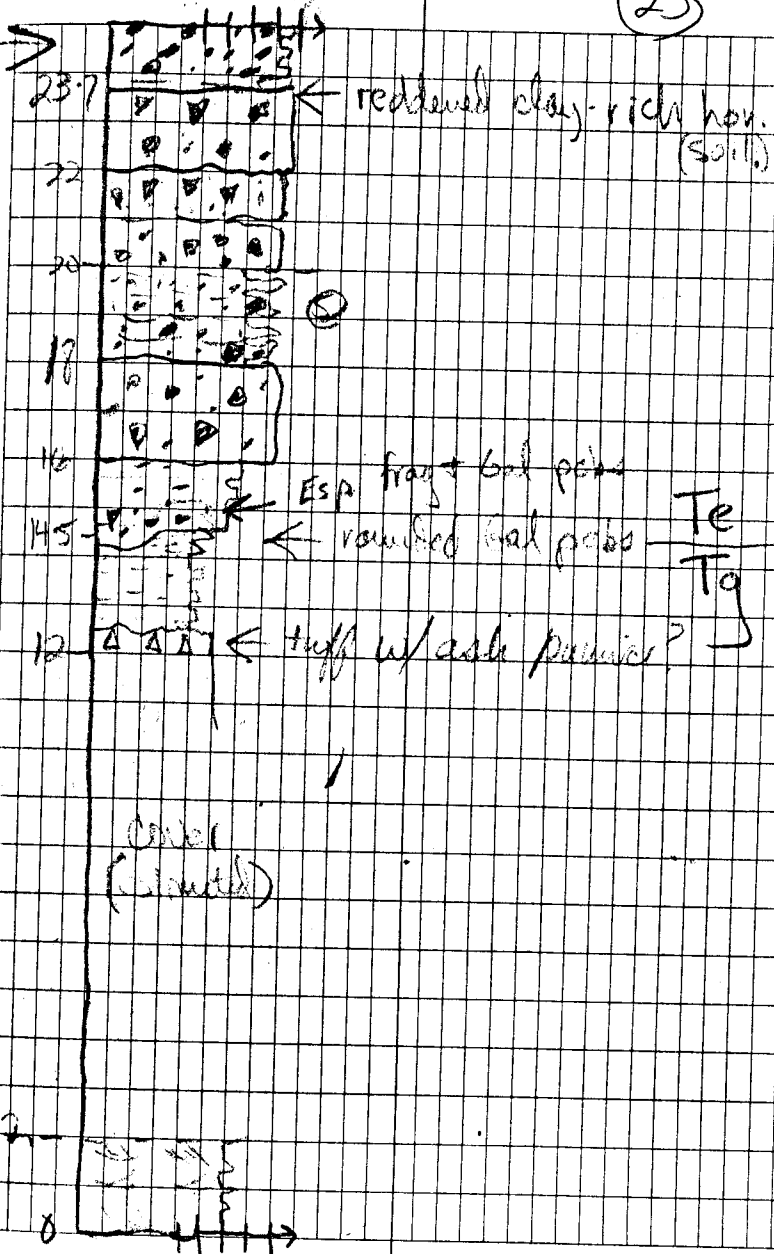 2
23.7
← reddened clay-rich hor.
(soil)
22
20
18
16
Esp frag + bal pebs
14.5
← rounded bal pebs
Te
Tg
12
← tuff w/ ash pumice?
cover
(estimated)
2
0